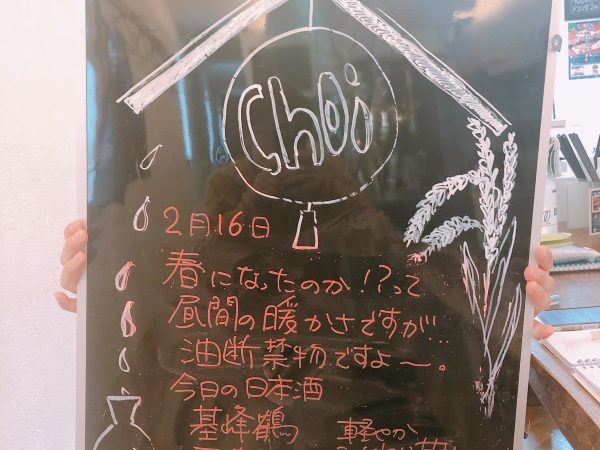 Choi
2月16日
春になったのか!?って
昼間の暖かさですが!…
油断禁物ですよ〜。
今日の日本酒
基峰鶴 軽やか